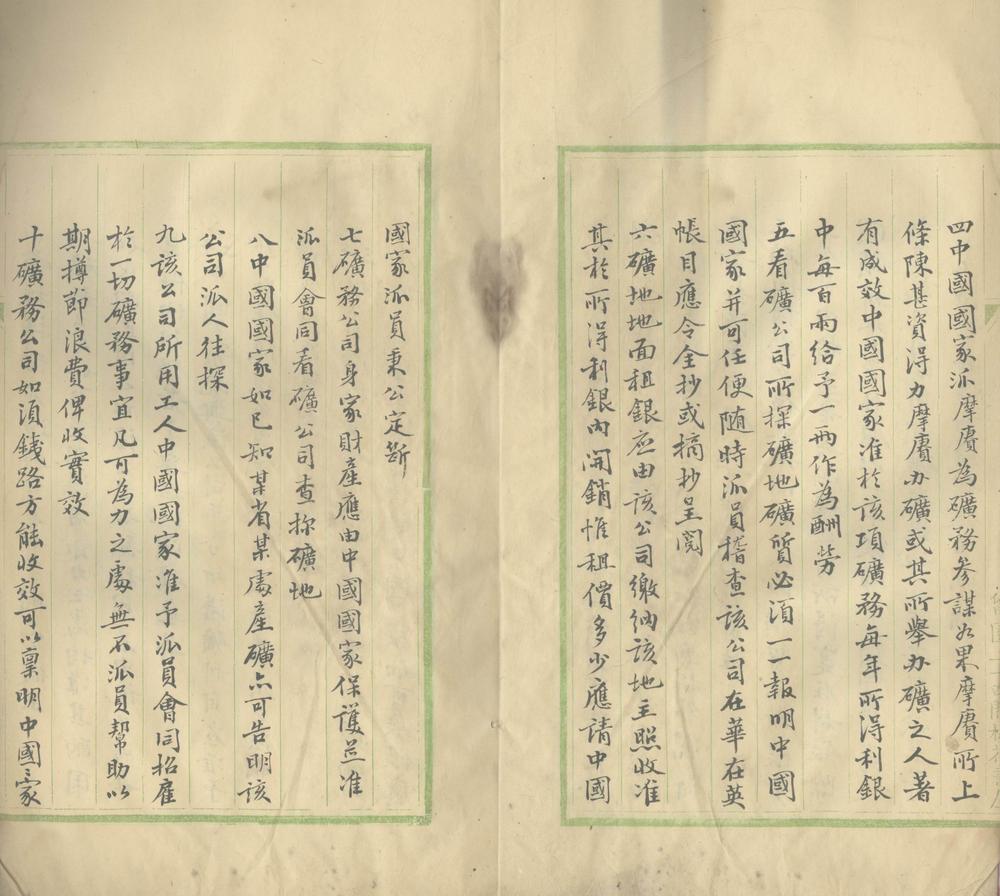 四中國國家派摩賡為礦務參謀如果摩賡所上
條陳甚資得力摩賡办礦或其所舉办礦之人著
有成效中國國家准於該項礦務每年所得利銀
中每百兩給予一兩作為酬勞
五看礦公司所探礦地礦質必須一一報明中國
國家并可任便隨時派員稽查該公司在華在英
帳目應令全抄或摘抄呈閱
六礦地地面租銀应由該公司繳納該地主照收准
其於所得利銀內開銷惟租價多少應請中國
國家派員秉公定斷
七礦務公司身家財產應由中國國家保護並准
派員會同看礦公司查探礦地
八中國國家如已知某省某處產礦亦可告明該
公司派人往探
九該公司所用工人中國國家准予派員會同招雇
於一切礦務事宜凡可為力之處無不派員幫助以
期撙節浪費俾收實效
十礦務公司如須鐵路方能收效可以稟明中國國家